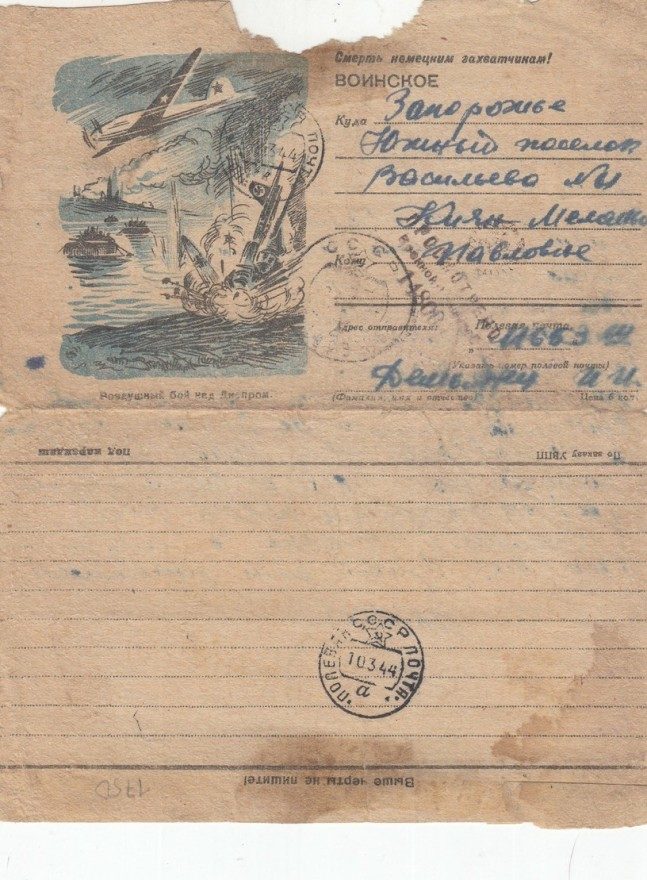 Смерть немецким захватчикам!
ВОИНСКОЕ
Куда Запорожье
Южный поселок
Васильева №1
Киян
Кому Павловне
Адрес отправителя: Полевая почта
11663
(Указать номер полевой почты)
(Фамилия, имя и отчество) Цена 6 коп.
Воздушный бой над Днепром.
ПОЧТА
3.44
СССР
По заказу УВПП
Под карандаш
ПОЛЕВАЯ СССР ПОЧТА
10.3.44
а
Выше черты не пишите!
1750